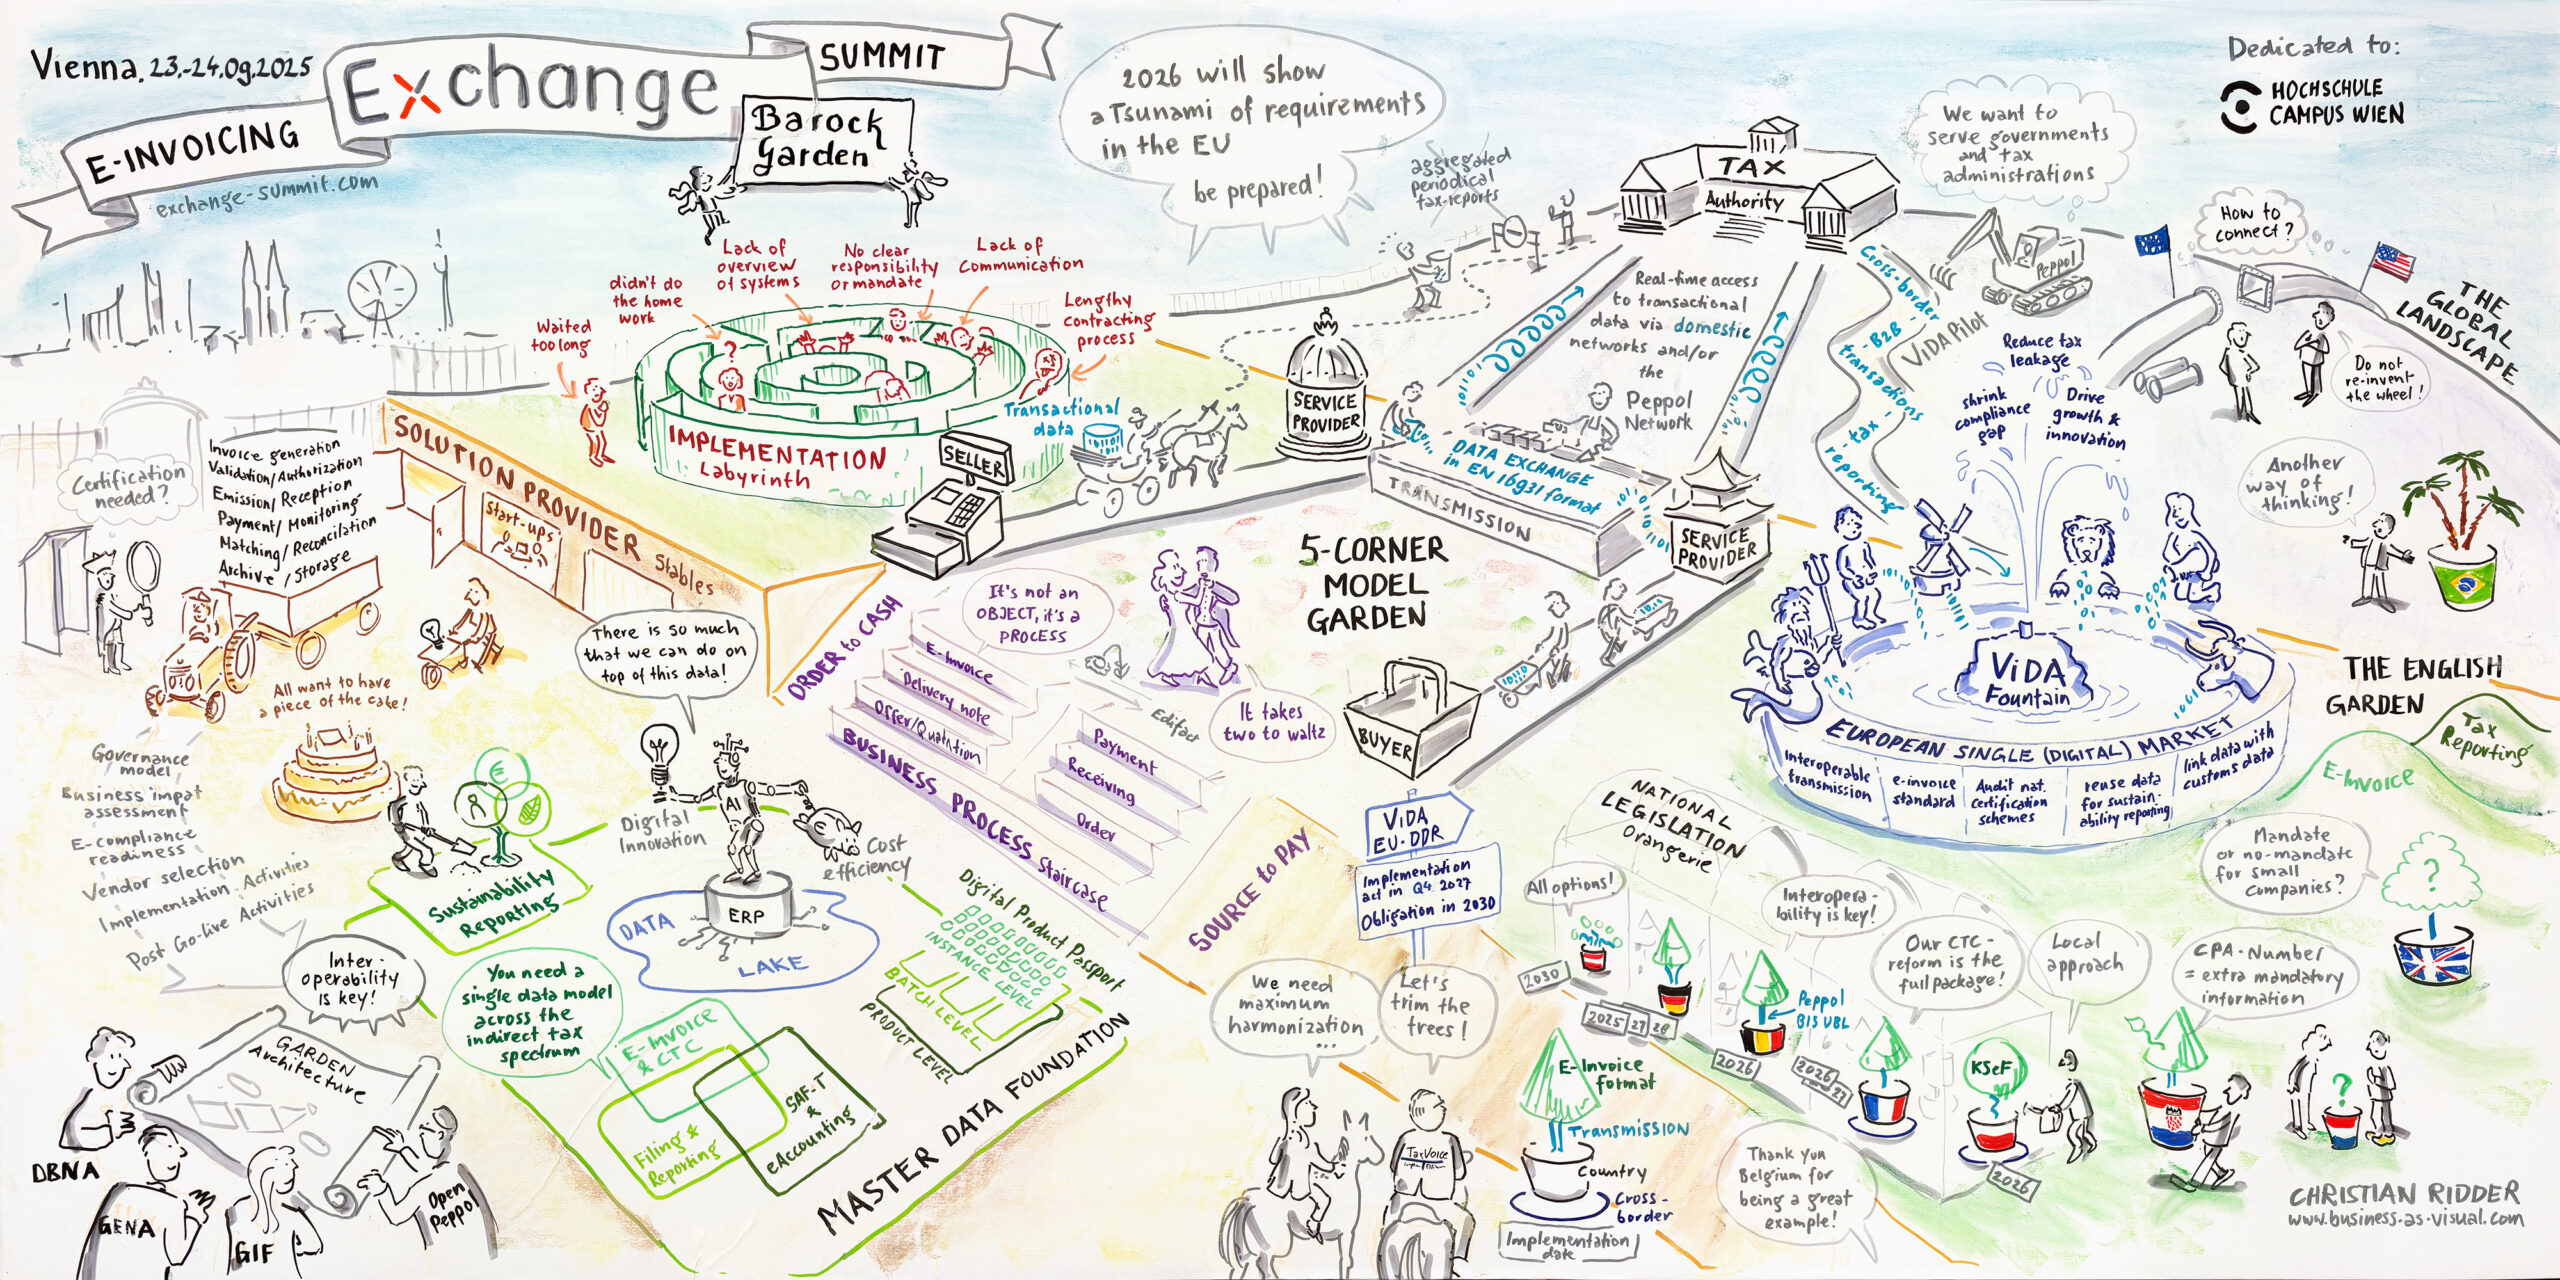 Vienna, 23.-24.09.2025
E-INVOICING
Exchange
SUMMIT
exchange-summit.com
Barock
Garden
2026 will show
a Tsunami of requirements
in the EU
be prepared!
Dedicated to:
HOCHSCHULE
CAMPUS WIEN
aggregated
periodical
tax-reports
TAX
Authority
We want to
serve governments
and tax
administrations
Peppol
ViDA Pilot
How to
connect?
THE
GLOBAL
LANDSCAPE
Do not
re-invent
the wheel!
Another
way of
thinking!
Waited
too long
didn't do
the home
work
Lack of
overview
of systems
No clear
responsibility
or mandate
Lack of
communication
Lengthy
contracting
process
?
IMPLEMENTATION
Labyrinth
Transactional
data
SELLER
SERVICE
PROVIDER
Real-time access
to transactional
data via domestic
networks and/or
the
Peppol
Network
DATA EXCHANGE
in EN 16931 format
TRANSMISSION
SERVICE
PROVIDER
Cross-border
B2B
transactions
-tax
reporting
5-CORNER
MODEL
GARDEN
BUYER
Reduce tax
leakage
shrink
compliance
gap
Drive
growth &
innovation
ViDA
Fountain
EUROPEAN SINGLE (DIGITAL) MARKET
Interoperable
transmission
e-invoice
standard
Audit nat.
certification
schemes
reuse data
for sustain-
ability reporting
link data with
customs data
THE ENGLISH
GARDEN
Tax
Reporting
E-Invoice
Mandate
or no-mandate
for small
companies?
?
Certification
needed?
Invoice generation
Validation/Authorization
Emission/Reception
Payment/Monitoring
Matching/Reconcilation
Archive/Storage
SOLUTION PROVIDER Stables
Start-ups
All want to have
a piece of the cake!
Governance
model
Business impat
assessment
E-compliance
readiness
Vendor selection
Implementation Activities
Post Go-live Activities
There is so much
that we can do on
top of this data!
Digital
Innovation
AI
Cost
efficiency
ERP
DATA
LAKE
€
Sustainability
Reporting
ORDER to CASH
It's not an
OBJECT, it's a
PROCESS
E-Invoice
Delivery note
Offer/Quotation
BUSINESS PROCESS Staircase
Edifact
It takes
two to waltz
Payment
Receiving
Order
SOURCE to PAY
Inter-
operability
is key!
GARDEN
Architecture
DBNA
GENA
GIF
Open
Peppol
You need a
single data model
across the
indirect tax
spectrum
E-Invoice
& CTC
Filing &
Reporting
SAF-T
&
eAccounting
Digital Product Passport
INSTANCE LEVEL
BATCH LEVEL
PRODUCT LEVEL
MASTER DATA FOUNDATION
ViDA
EU-DDR
Implementation
act in Q4 2027
Obligation in 2030
We need
maximum
harmonization
...
Let's
trim the
trees!
TaxVoice
NATIONAL
LEGISLATION
Orangerie
All options!
2030
2025
27
28
Interopera-
bility is key!
Peppol
BIS UBL
2026
Our CTC-
reform is the
full package!
2026
27
Local
approach
KSeF
2026
CPA-Number
= extra mandatory
information
?
E-Invoice
format
Transmission
Country
Cross-
border
Implementation
date
Thank you
Belgium for
being a great
example!
CHRISTIAN RIDDER
www.business-as-visual.com